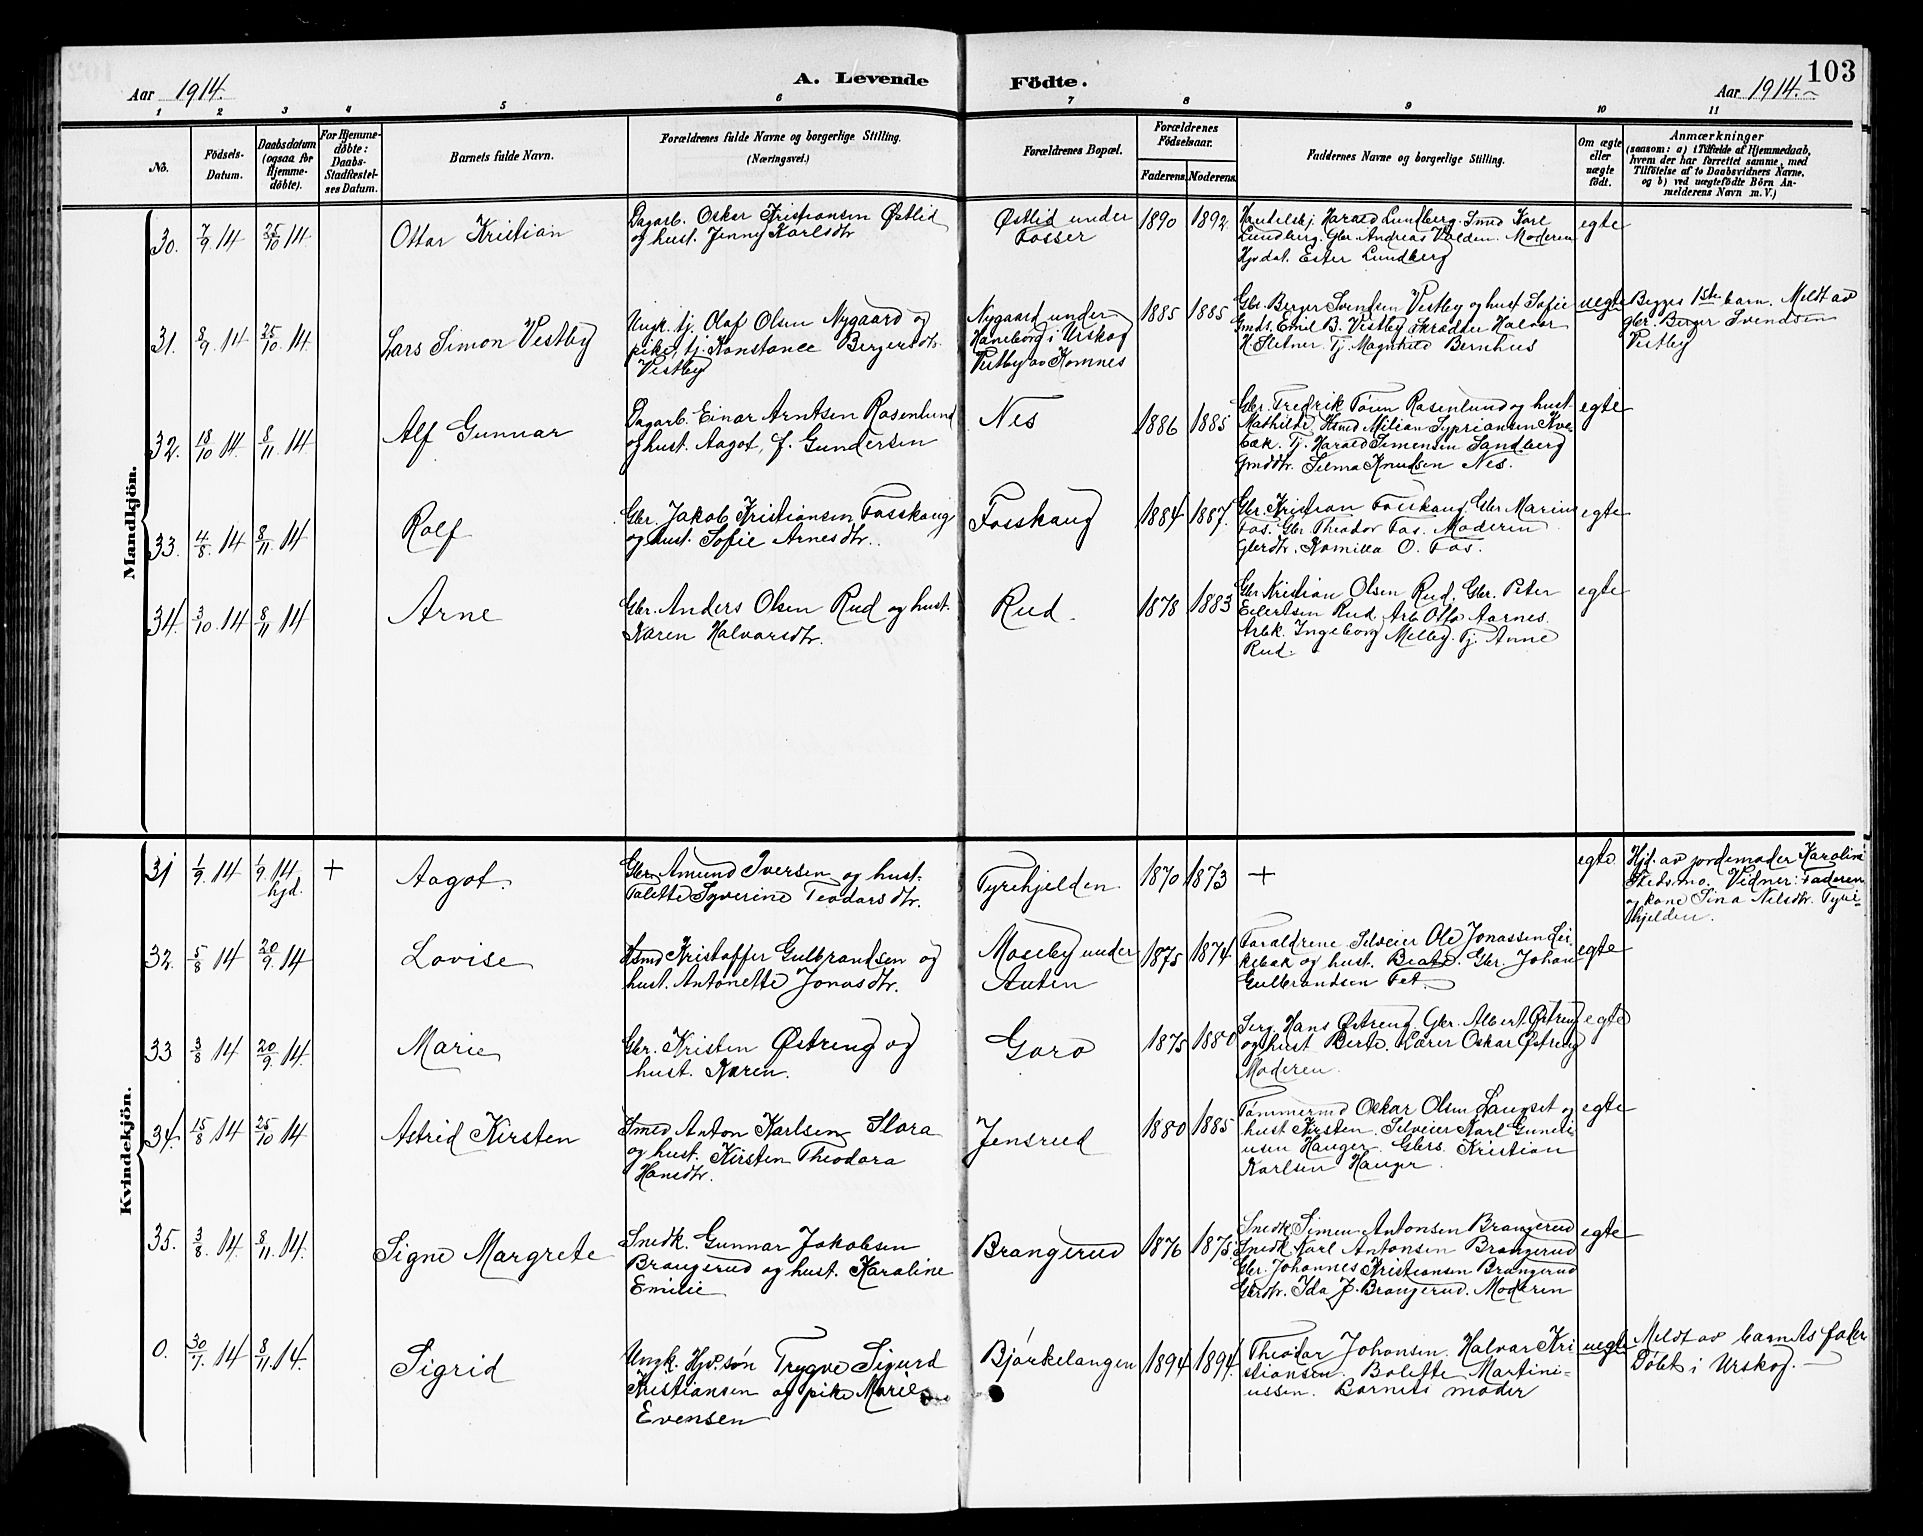 103
A. Levende Födte.
Aar 1914.
Aar 1914.
1 2 3 4 5 6 7 8 9 10 11
No.
Födsels-Datum.
Daabsdatum (ogsaa for Hjemmedöbte).
For Hjemmedöbte: Daabs-Stadfæstelses Datum.
Barnets fulde Navn.
Forældrenes fulde Navne og borgerlige Stilling.
(Næringsvei.)
Forældrenes Bopæl.
Forældrenes Födselsaar.
Faderens. Moderens.
Faddernes Navne og borgerlige Stilling.
Om ægte eller uægte födt.
Anmærkninger
(saasom: a) i Tilfælde af Hjemmedaab, hvem der har forrettet samme, med Tilföielse af to Daabsvidners Navne, og b) ved uægtefödte Börn Anmelderens Navn m. V.)
Mandkjön.
30. 7/9 14 25/10 14 Ottar Kristian
Dagarb. Oskar Kristiansen Østlid
og hust. Jenny Karlsdtr
Østlid under
Fosser
1890 1892
Handelsbj. Harald Lundberg. Smed Karl
Lundberg. Gbr. Andreas Valden. Moderen
Hjvdat. Ester Lundberg
egte
31. 8/9 14 25/10 14 Lars Simon Vestby
Ungk. tj. Olaf Olsen Nygaard og
pike tj. Konstance Bergersdtr.
Vestby
Nygaard under
Haneborg i Urskog
Vestby av Komnes
1885 1885
Gbr. Berger Svendsen Vestby og hust Sofie
Gmds. Emil B. Vestby Skrædder Halvor
H. Sletner. Tj. Magnhild Bernhus
uegte
Begges 1ste barn. Meldt av
gbr. Berger Svendsen
Vestby
32. 18/10 14. 8/11 14 Alf Gunnar
Dagarb. Einar Arntsen Rosenlund
og hust. Aagot, f. Gundersen
Nes
1886 1885
Gbr. Fredrik Rosenlund og hust.
Mathilde. Milian Sypriansen Kve-
bæk. Tj. Harald Simensen Sandberg
Gmddtr. Selma Knudsen Nes.
egte
33. 4/8 14 8/11 14 Rolf
Gbr. Jakob Kristiansen Fosskaug
og hust. Sofie Arnesdtr.
Fosskaug
1884 1887.
Gbr. Kristian Fosskaug. Gbr. Marius
Fos. Gbr. Theodor Fos. Moderen
Gbrdtr. Kamilla O. Fos.
egte
34. 3/10 14 8/11 14 Arne
Gbr. Anders Olsen Rud og hust.
Karen Halvorsdtr.
Rud.
1878 1883
Gbr Kristian Olsen Rud. Gbr. Peter
Eilertsen Rud. Arb Otto Aarnes.
Arbk. Ingeborg Melby. Tj. Anne
Rud.
egte
Kvindekjön.
31 1/9 14 1/9 14 hjd. + Aagot.
Gbr. Amund Iversen og hust.
Talette Syverine Teodorsdtr.
Tyrihjelden
1870 1873 +
egte
Hjd. av jordemoder Karoline
Skedsmo. Vidner: Faderen
og kone Sina Nilsdtr. Tyri-
hjelden.
32. 5/8 14 20/9 14 Lovise
Kristoffer Gulbrandsen og
hust. Antonette Jonasdtr.
Moseby under
Auten
1875 1874
Forældrene Selveier Ole Jonassen Lir-
kebæk og hust. Beate. Gbr. Johan
Gulbrandsen Fet.
egte
33 3/8 14 20/9 14. Marie
Gbr. Kristen Østreng og
hust. Karen.
Goro
1875 1880
Serg. Hans Østreng. Gbr. Albert Østreng
og hust Berte. Lærer Oskar Østreng
Moderen.
egte
34. 15/8 14 25/10 14 Astrid Kirsten
Smed Anton Karlsen Slora
og hust. Kirsten Theodora
Hansdtr.
Jensrud
1880 1885
Tømmermd Oskar Olsen Langset og
hust Kirsten. Selveier Karl Guneri-
usen Hauger. Gbrs. Kristian
Karlsen Hauger.
egte
35. 3/8 14 8/11 14. Signe Margrete
Snedk. Gunnar Jakobsen
Brangerud og hust. Karoline
Emilie
Brangerud
1876 1875
Snedk. Simen Antonsen Brangerud
Snedk Karl Antonsen Brangerud
Gbr. Johannes Kristiansen Brangerud
Gbrdtr. Ida J. Brangerud. Moderen
egte
0. 30/7 14 8/11 14. Sigrid
Ungk. Hjv.søn Trygve Sigurd
Kristiansen og pike Marie
Evensen
Bjørkelangen
1894 1894.
Theodor Johansen. Halvor Kri-
stiansen. Bolette Martini-
ussen. Barnets moder
uegte
Meldt av barnets fader
Døbt i Urskog.